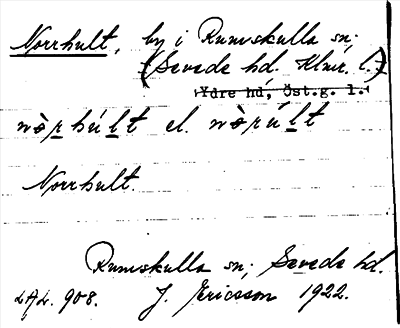 Norrhult, by i Rumskulla sn;
(Sevede hd. Klmr. l.)
Ydre hd, Öst.g. l.
nòr̲húl̲t el. nòrúl̲t
Norrhult.
Rumskulla sn; Sevede hd.
LAL. 908. J. Ericsson 1922.